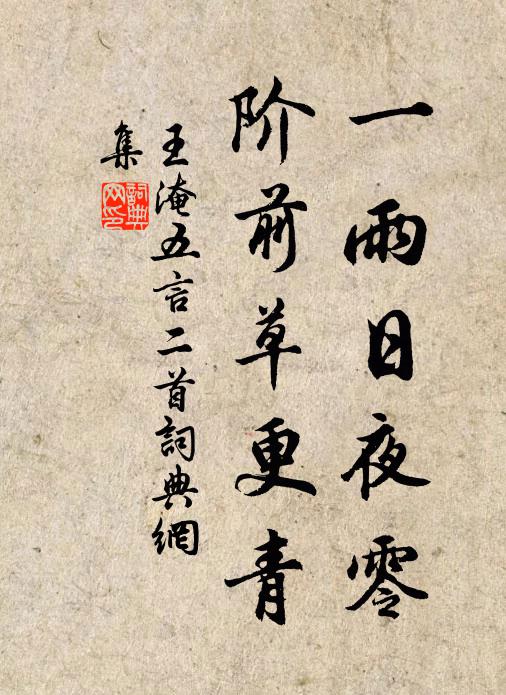 一雨日夜零
阶前草更青
王淹五言二首詞典網
集
詞典網印